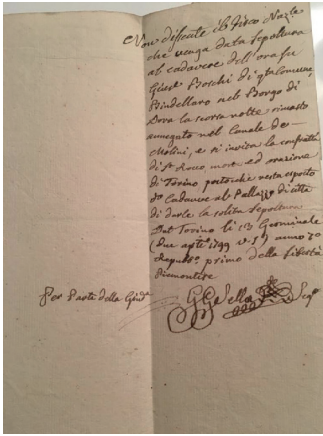 Non dissente il Fisco Naz.le
che venga data sepoltura
al cadavere dell'ora fu
Gius.e Boschi di q.ta Comune,
Bindellaro nel Borgo di
Dora la scorsa notte rimasto
annegato nel Canale de
Molini, e si invita la confrat.a
di S. Rocco, morte ed orazione
di Torino postochè resta esposto
d.o Cadavere al Palazzo di città
di darle la solita sepoltura
Dat Torino li 13 Germinale
(due ap.le 1799 v. s.) anno 7o
Repubb.o primo della libertà
Piemontese
Per Parte della Giud.a
Seg.o